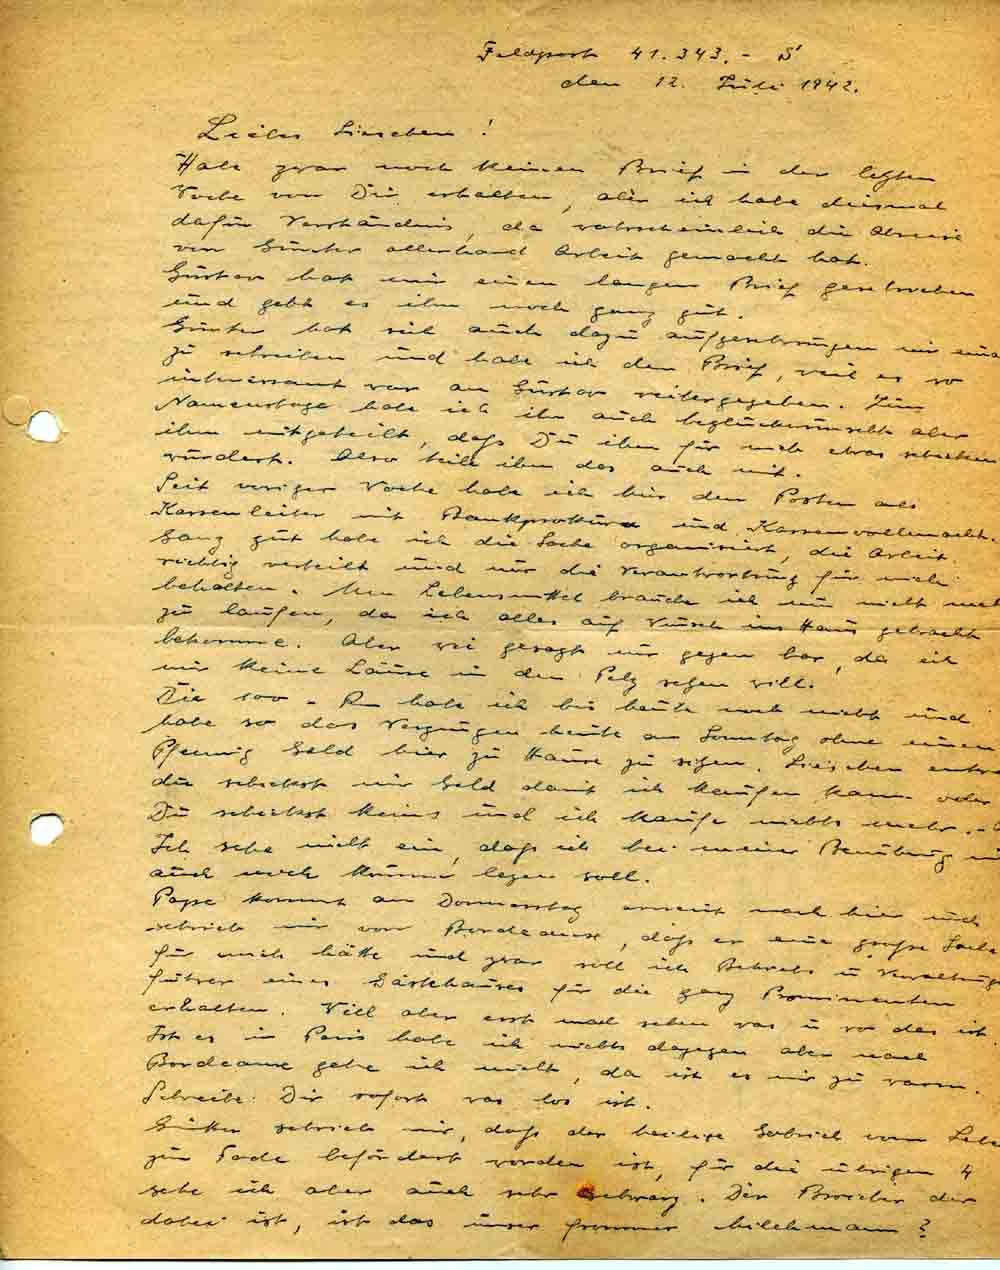 Feldpost 41.343.- S
den 12. Juli 1942.
Liebes Lieschen!
Habe zwar noch keinen Brief in der letzten
Woche von Dir erhalten, aber ich habe diesmal
dafür Verständnis, da wahrscheinlich die Abreise
von Günter allerhand Arbeit gemacht hat.
Gustav hat mir einen langen Brief geschrieben
und geht es ihm noch ganz gut.
Günter hat sich auch dazu aufgeschwungen mir
zu schreiben und habe ich den Brief, weil es so
interessant war an Gustav weitergegeben. Zum
Namenstage habe ich ihn auch beglückwünscht aber
ihm mitgeteilt, daß Du ihm für mich etwas schicken
würdest. Also teile ihm das auch mit.
Seit voriger Woche habe ich hier den Posten als
Kassenleiter mit Bankprokura und Kassenvollmacht.
Ganz gut habe ich die Sache organisiert, die Arbeit
richtig verteilt und nur die Verantwortung für mich
behalten. Um Lebensmittel brauche ich nun nicht
zu laufen, da ich alles auf Wunsch ins Haus gebracht
bekomme. Aber wie gesagt nur gegen bar, da ich
mir keine Läuse in den Pelz setzen will.
Die 100.- Rm habe ich bis heute noch nicht und
habe so das Vergnügen heute am Sonntag ohne einen
Pfennig Geld hier zu Hause zu sitzen. Lieschen
du schickst mir Geld damit ich kaufen kann oder
Du schickst keins und ich kaufe nichts mehr.
Ich sehe nicht ein, daß ich bei meiner Bemühung
auch noch Kummer legen soll.
Pape kommt am Donnerstag erneut nach hier und
schrieb mir von Bordeaux, daß er eine große Sache
für mich hätte und zwar soll ich Betriebs u Verwaltungs
führer eines Gästehauses für die ganz Prominenten
erhalten. Will aber erst mal sehen was u wo das ist.
Ist es in Paris habe ich nichts dagegen aber nach
Bordeaux gehe ich nicht, da ist es mir zu warm.
Schreibe Dir sofort was los ist.
Günter schrieb mir, daß der heilige Gabriel vom
zum Tode befördert worden ist, für die übrigen 4
sehe ich aber auch sehr schwarz. Der der
dabei ist, ist das unser frommer Milchmann?